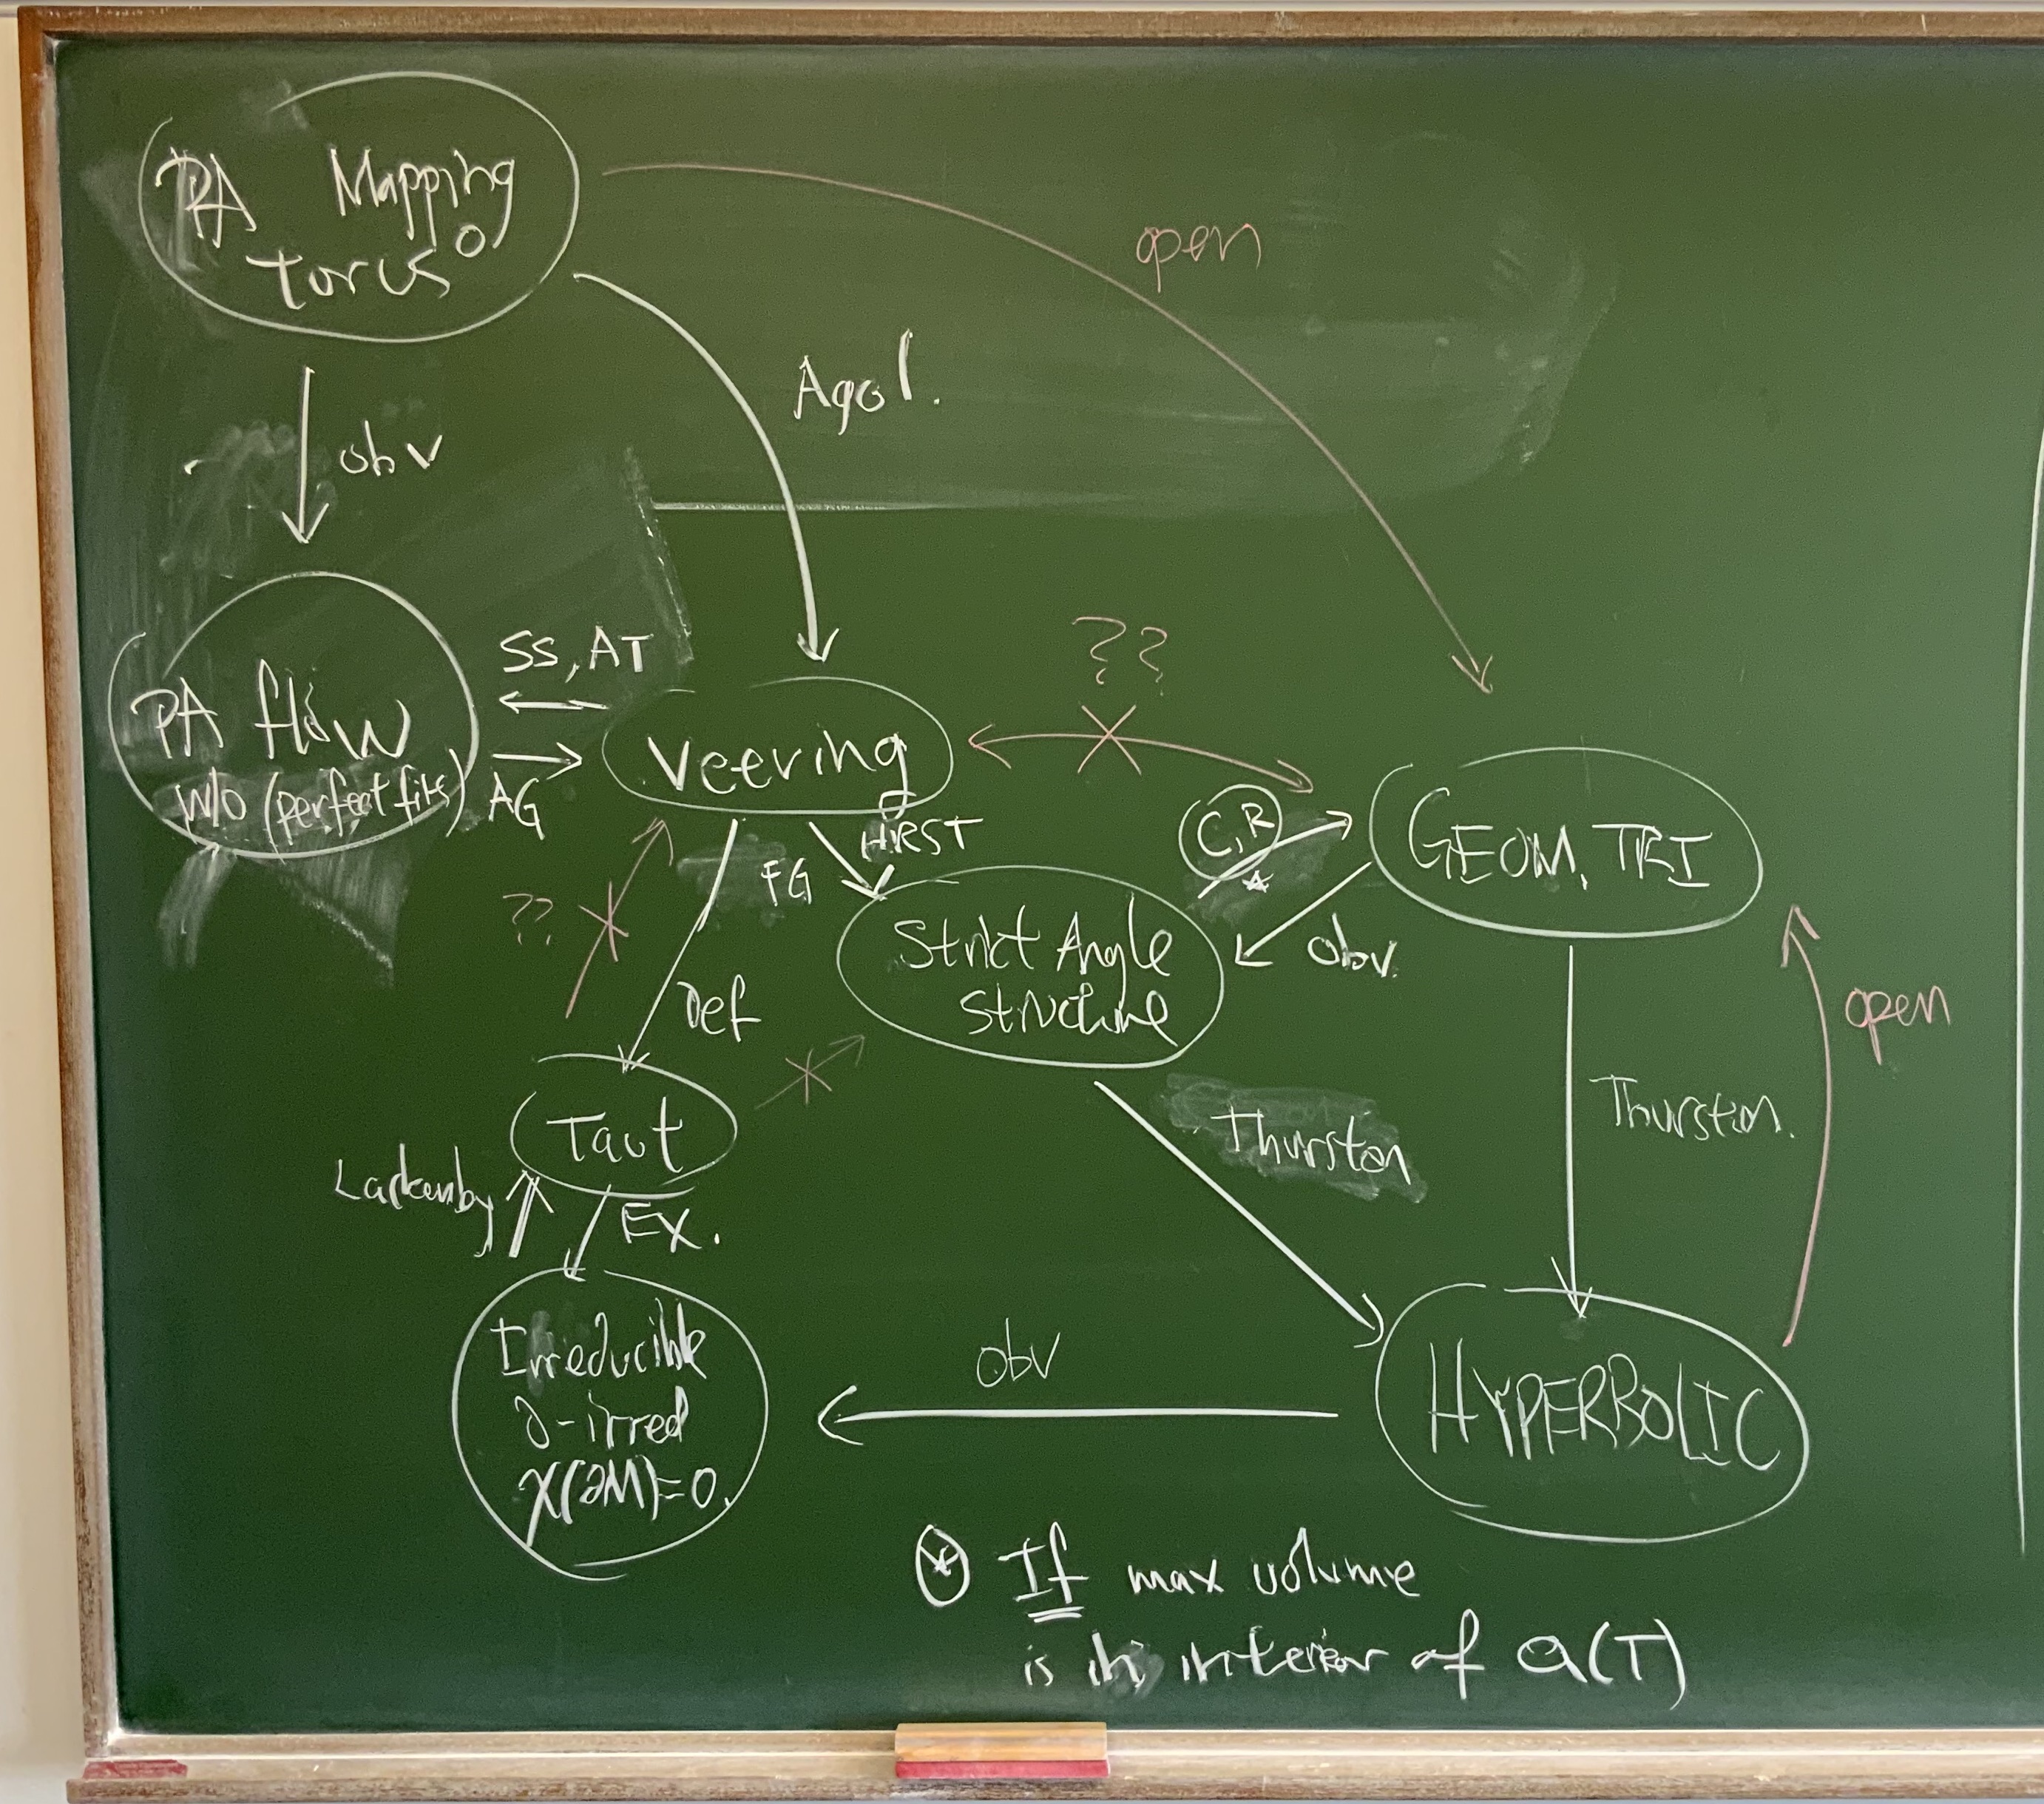 PA Mapping
torus°
open
Agol.
obv
SS, AT
??
PA flow
w/o (perfect fits)
AG
Veering
C, R
*
GEOM. TRI
HRST
FG
??
Strict Angle
Structure
obv.
Def
open
Taut
Thurston
Thurston.
Lackenby
Ex.
Irreducible
∂-irred
χ(∂M)=0.
obv
HYPERBOLIC
⊛ If max volume
is in interior of a(T)